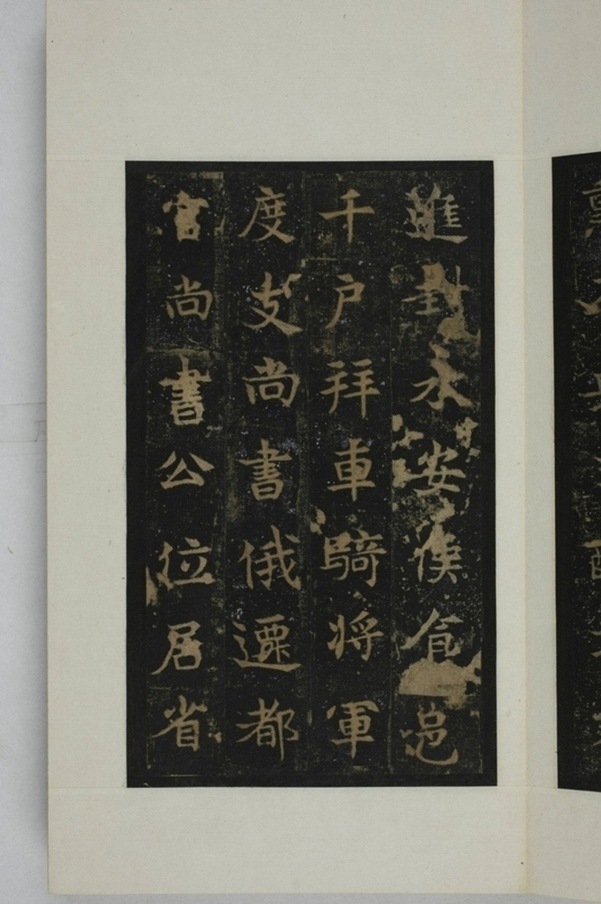 進封永安侯食邑
千户拜車騎將軍
度支尚書俄遷都
官尚書公位居省